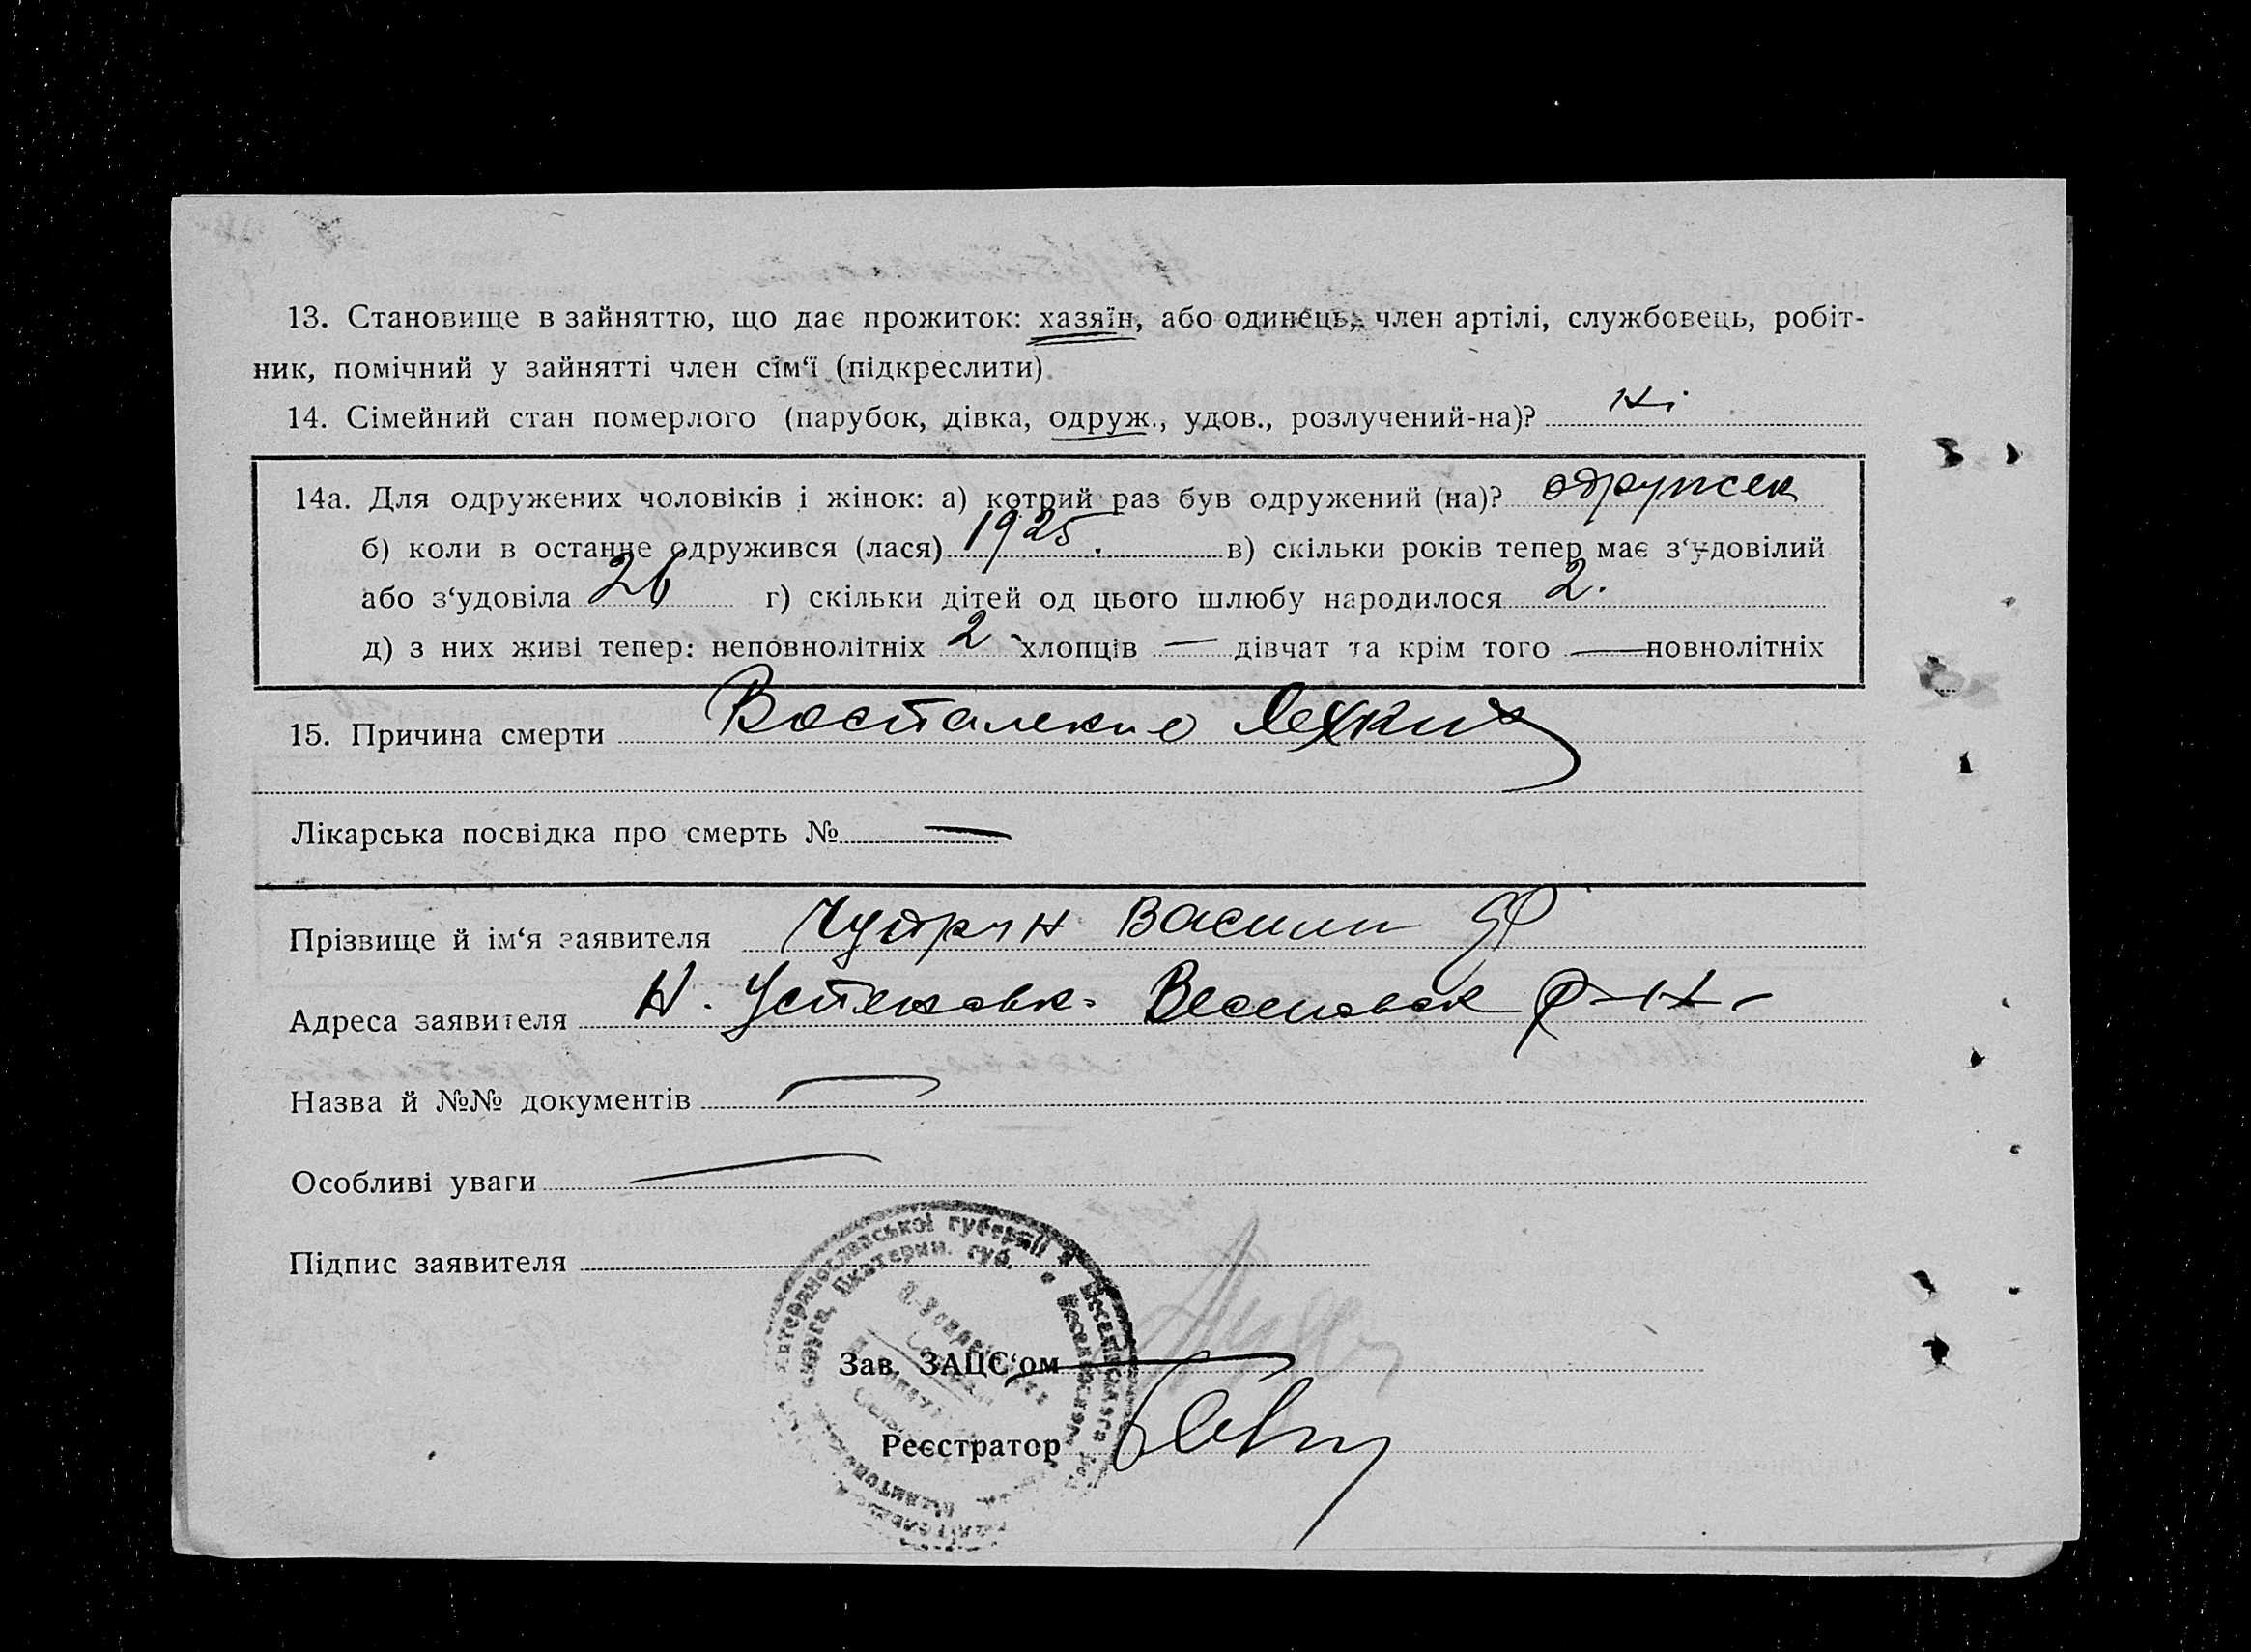 13. Становище в зайняттю, що дає прожиток: хазяїн, або одинець, член артілі, службовець, робіт-
ник, помічний у зайнятті член сім‘ї (підкреслити).
14. Сімейний стан померлого (парубок, дівка, одруж., удов., розлучений-на)? Ні
14а. Для одружених чоловіків і жінок: а) котрий раз був одружений (на)? одружен
б) коли в останнє одружився (лася) 1925. в) скільки років тепер має з‘удовілий
або з‘удовіла 26 г) скільки дітей од цього шлюбу народилося 2.
д) з них живі тепер: неповнолітніх 2 хлопців — дівчат та крім того — повнолітніх
15. Причина смерти Восталение Лехких
Лікарська посвідка про смерть № —
Прізвище й ім‘я заявителя Василь
Адреса заявителя Н. Успеновк. Веселовск р-н
Назва й №№ документів —
Особливі уваги —
Підпис заявителя
Катеринославської губернії
Екатерин. губ.
Зав. ЗАЦС‘ом
Реєстратор